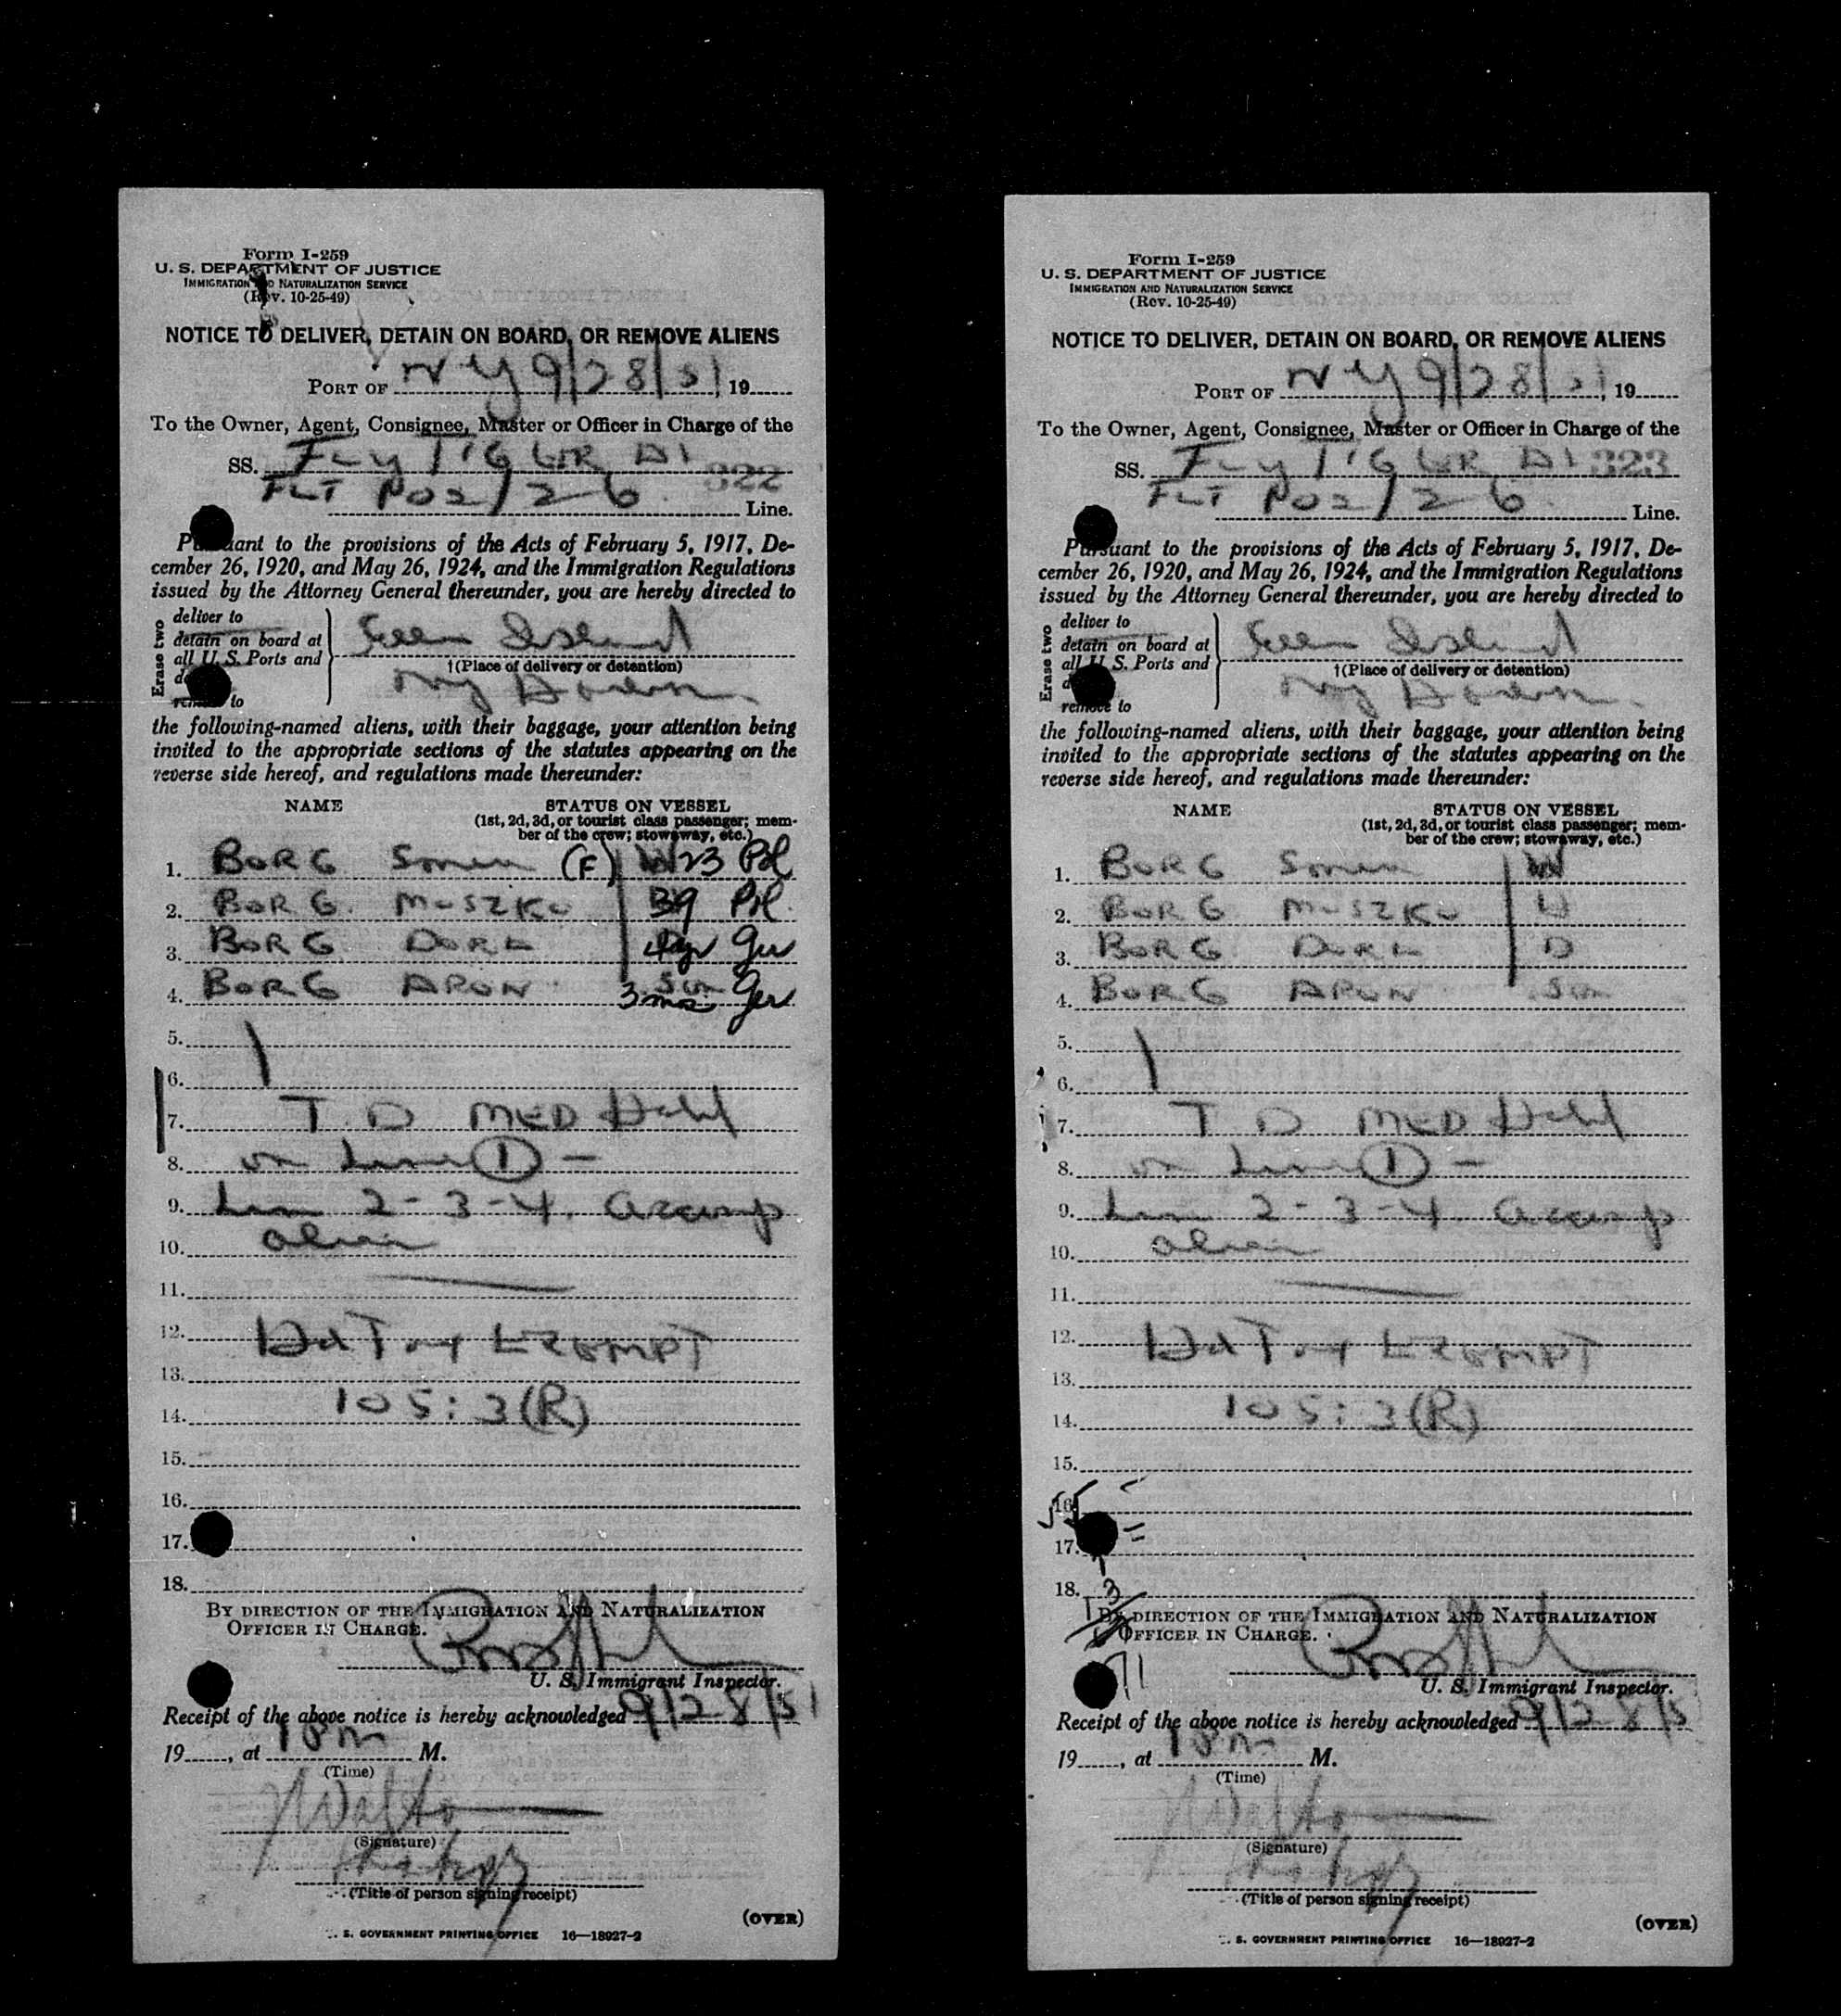 Form I-259
U. S. DEPARTMENT OF JUSTICE
IMMIGRATION AND NATURALIZATION SERVICE
(Rev. 10-25-49)
NOTICE TO DELIVER, DETAIN ON BOARD, OR REMOVE ALIENS
PORT OF NY 9/28/51, 19
To the Owner, Agent, Consignee, Master or Officer in Charge of the
SS. FLY TIGER 322
FLT P02/26
Line.
Pursuant to the provisions of the Acts of February 5, 1917, De-
cember 26, 1920, and May 26, 1924, and the Immigration Regulations
issued by the Attorney General thereunder, you are hereby directed to
Erase two
deliver to
detain on board at
all U. S. Ports and
remove to
Island
†(Place of delivery or detention)
NY
the following-named aliens, with their baggage, your attention being
invited to the appropriate sections of the statutes appearing on the
reverse side hereof, and regulations made thereunder:
NAME STATUS ON VESSEL
(1st, 2d, 3d, or tourist class passenger; mem-
ber of the crew; stowaway, etc.)
1. BORG (F) W 23 Pol
2. BORG MOSZKO 39 Pol
3. BORG DORA 4yr Ger
4. BORG ARON Son 3 mos Ger
5.
6.
7. T. D MED Held
8. on Line 1 -
9. Line 2-3-4. accomp
10. alien
11.
12. Hd Tax EXEMPT
13.
14. 105:3(R)
15.
16.
17.
18.
BY DIRECTION OF THE IMMIGRATION AND NATURALIZATION
OFFICER IN CHARGE.
U. S. Immigrant Inspector.
Receipt of the above notice is hereby acknowledged 9/28/51
19, at 1 Pm M.
(Time)
(Signature)
(Title of person signing receipt)
(OVER)
S. GOVERNMENT PRINTING OFFICE 16—18927-2
Form I-259
U. S. DEPARTMENT OF JUSTICE
IMMIGRATION AND NATURALIZATION SERVICE
(Rev. 10-25-49)
NOTICE TO DELIVER, DETAIN ON BOARD, OR REMOVE ALIENS
PORT OF NY 9/28/51, 19
To the Owner, Agent, Consignee, Master or Officer in Charge of the
SS. FLY TIGER 323
FLT P02/26
Line.
Pursuant to the provisions of the Acts of February 5, 1917, De-
cember 26, 1920, and May 26, 1924, and the Immigration Regulations
issued by the Attorney General thereunder, you are hereby directed to
Erase two
deliver to
detain on board at
all U. S. Ports and
remove to
Island
†(Place of delivery or detention)
NY
the following-named aliens, with their baggage, your attention being
invited to the appropriate sections of the statutes appearing on the
reverse side hereof, and regulations made thereunder:
NAME STATUS ON VESSEL
(1st, 2d, 3d, or tourist class passenger; mem-
ber of the crew; stowaway, etc.)
1. BORG W
2. BORG MOSZKO H
3. BORG DORA D
4. BORG ARON Son
5.
6.
7. T D MED Held
8. on Line 1 -
9. Line 2-3-4 accomp
10. alien
11.
12. Hd Tax EXEMPT
13.
14. 105:3(R)
15.
16.
17.
18.
BY DIRECTION OF THE IMMIGRATION AND NATURALIZATION
OFFICER IN CHARGE.
U. S. Immigrant Inspector.
Receipt of the above notice is hereby acknowledged 9/28/5
19, at 1 Pm M.
(Time)
(Signature)
(Title of person signing receipt)
(OVER)
S. GOVERNMENT PRINTING OFFICE 16—18927-2